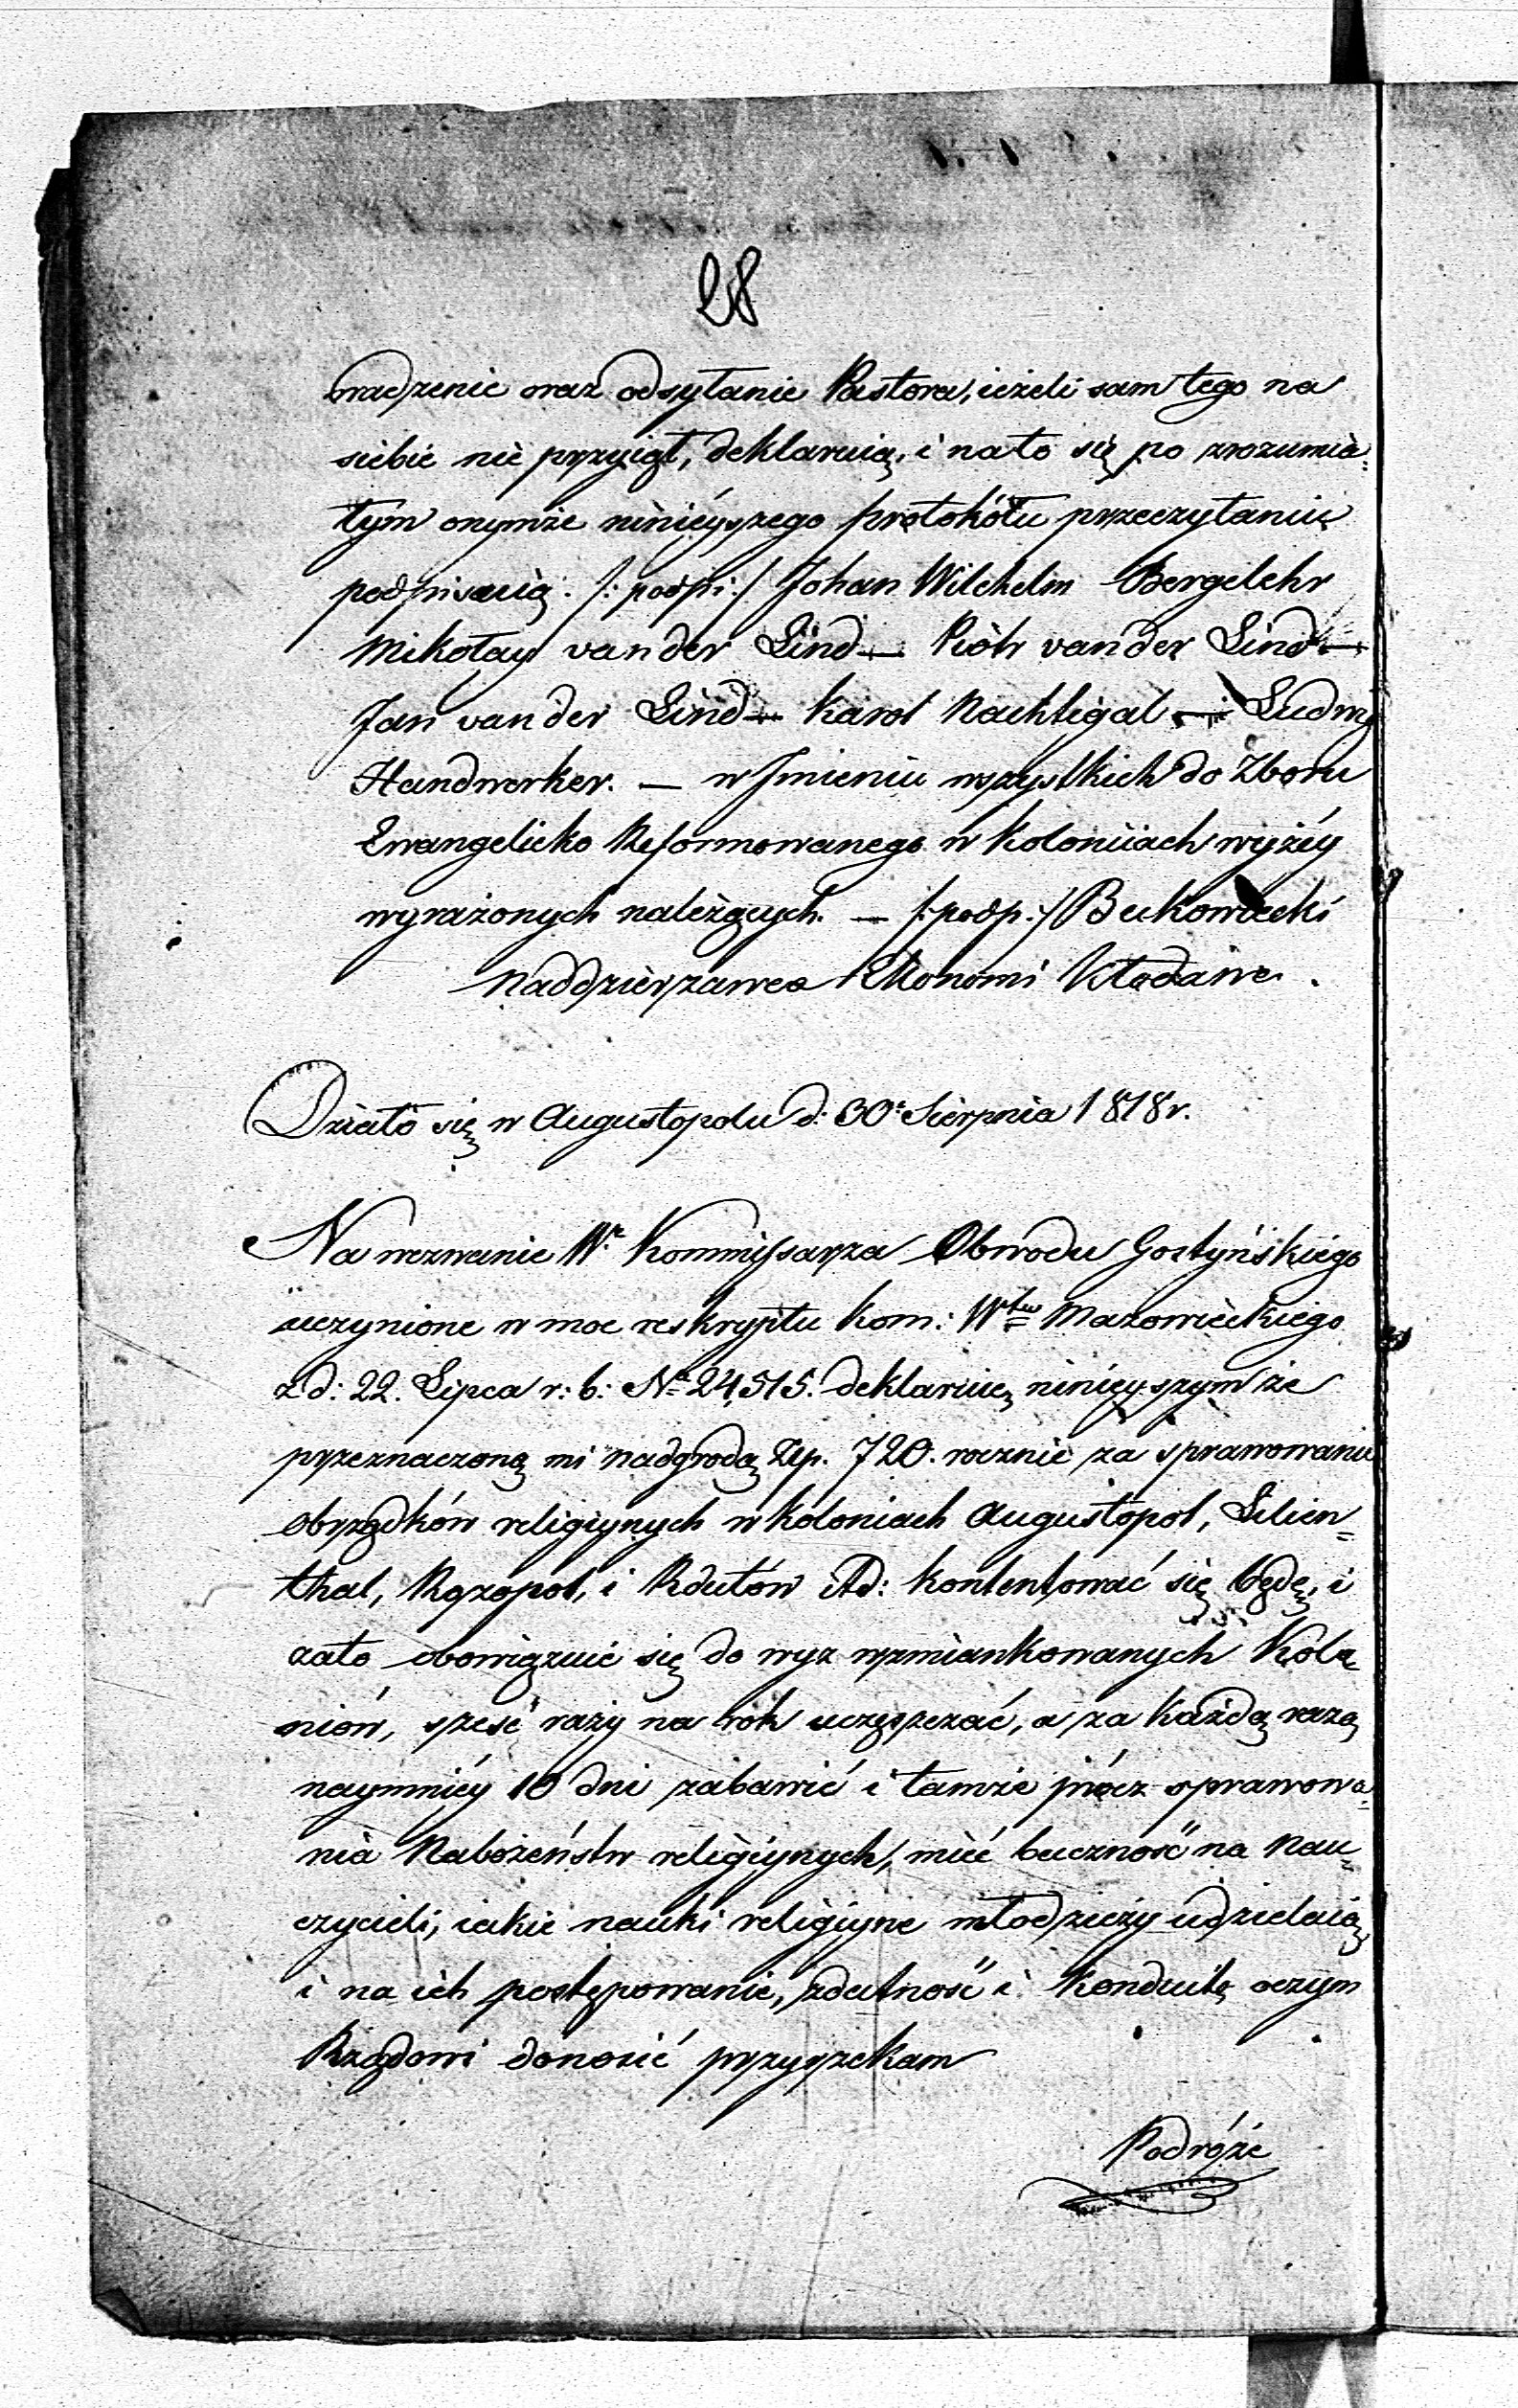 28
wadzenie oraz odsyłanie Pastora, ieżeli sam tego na
siebie nie przyiął, deklaruią, i na to się po zrozumia=
łym onymże ninieyszego protokółu przeczytaniu
podpisuią. /: podpi :/ Johan Wilchelm Bergelehr
Mikołay van der Lind — Piotr van der Lind —
Jan van der Lind — Karol Nachtigal — Ludwig
Handwerker. — w Jmieniu wszystkich do Zboru
Ewangelicko Reformowanego w Koloniiach wyżéy
wyrażonych należących. — /: podp :/ Bukowiecki
Naddzierżawca Ekonomi Kłodawa.
Działo się w Augustopolu d: 30: Sierpnia 1818 r.
Na wezwanie Wo Kommissarza Obwodu Gostyńskiego
uczynione w moc reskryptu Kom: Wtwa Mazowieckiego
z d: 22. Lipca r: b: No 24,515. deklaruię ninieyszym że
przeznaczoną mi nadgrodą Złp. 720. rocznie za sprawowanie
obrządków religiynych w koloniach Augustopol, Lilien=
thal, Rązopol, i Rdutów itd: kontentować się będę, i
zato obowiązuić się do wyz wzmiankowanych Kolo
niów, sześć razy na rok uczęszczać, a za każdą razą
naymniéy 10 dni zabawić i tamże prócz sprawowa=
nia Nabożeństw religiynych, mieć baczność na nau=
czycieli, iakie nauki religiyne młodzieży udzielaią
i na ich postępowanie, zdatność i Konduitę oczym
Rządowi donosić przyrzekam
Podróże